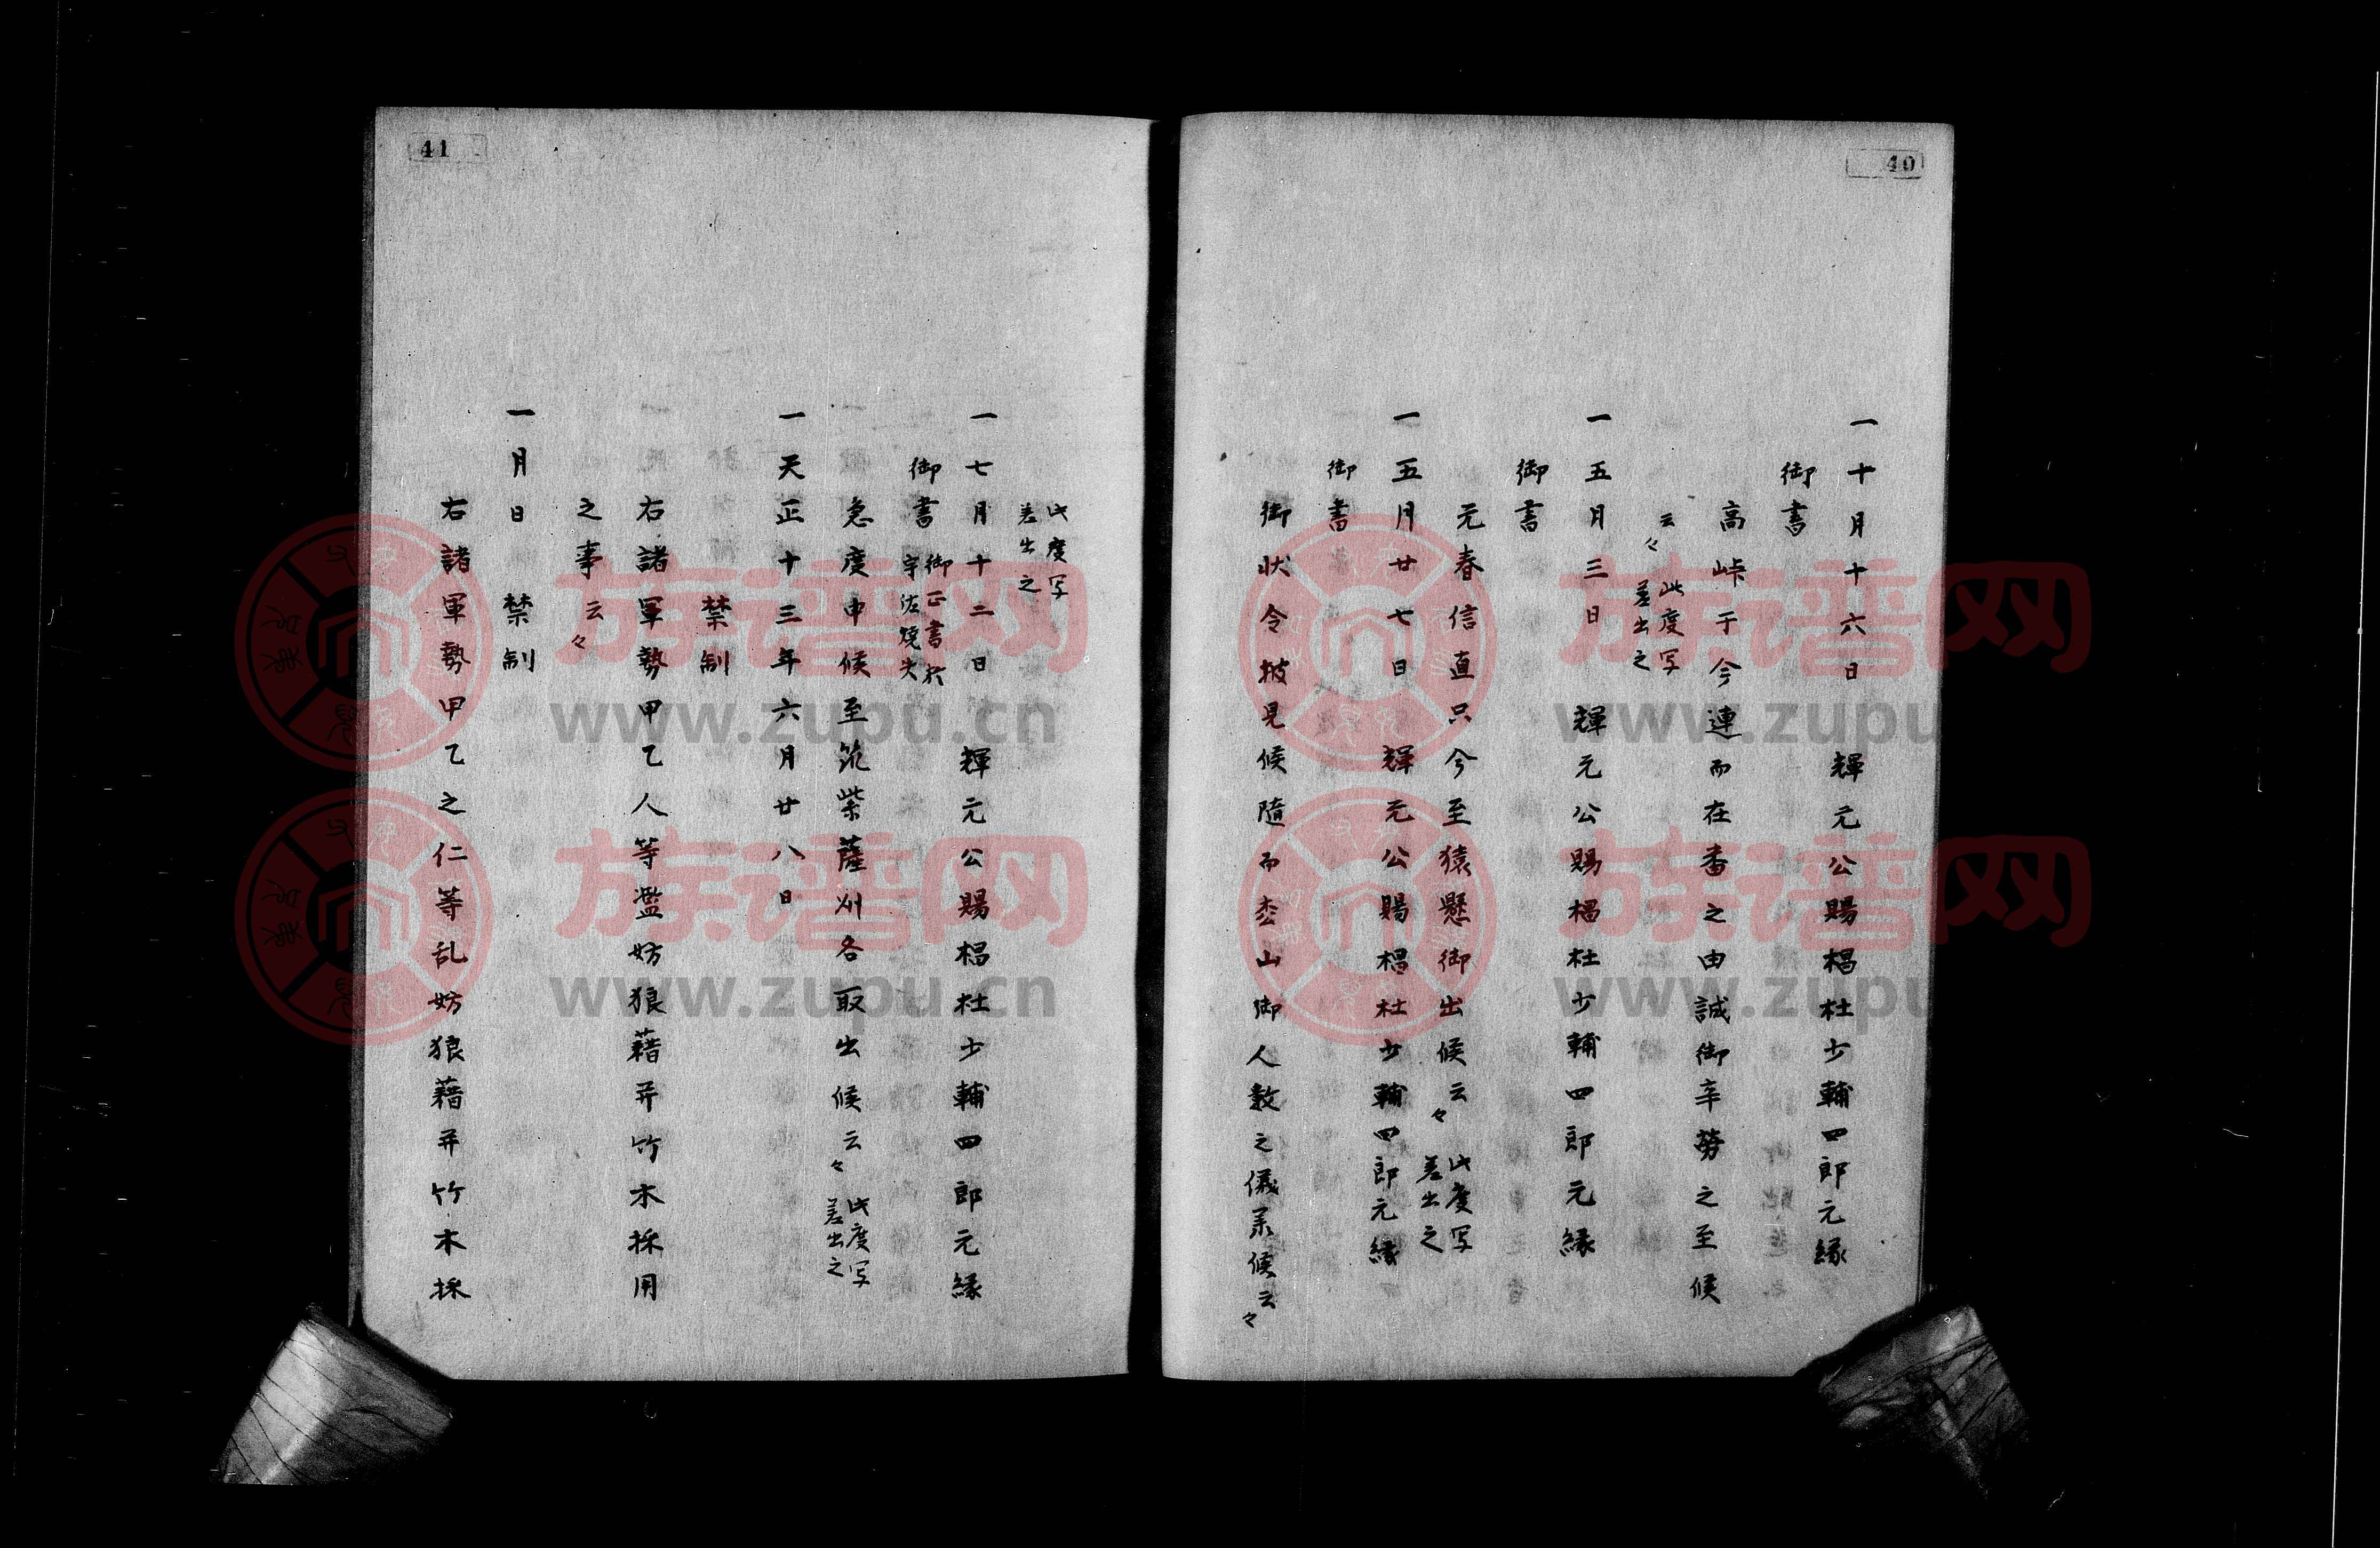 40
一十月十六日　輝元公賜椙杜少輔四郎元縁
御書
高峠于今連而在番之由誠御辛労之至候
云々 此度写
差出之
一五月三日　輝元公賜椙杜少輔四郎元縁
御書
元春信直只今至猿懸御出候云々 此度写
差出之
一五月廿七日　輝元公賜椙杜少輔四郎元縁
御書
御状令披見候随而杢山御人数之儀承候云々
41
此度写
差出之
一七月十二日　輝元公賜椙杜少輔四郎元縁
御書 御正書於
宇佐焼失
急度申候至筑紫薩州各取出候云々 此度写
差出之
一天正十三年六月廿八日
禁制
右諸軍勢甲乙人等濫妨狼藉并竹木採用
之事云々
一月日　禁制
右諸軍勢甲乙之仁等乱妨狼藉并竹木採
族谱网
www.zupu.cn
族谱网
www.zupu.cn
族谱网
www.zupu
族谱网
www.zupu